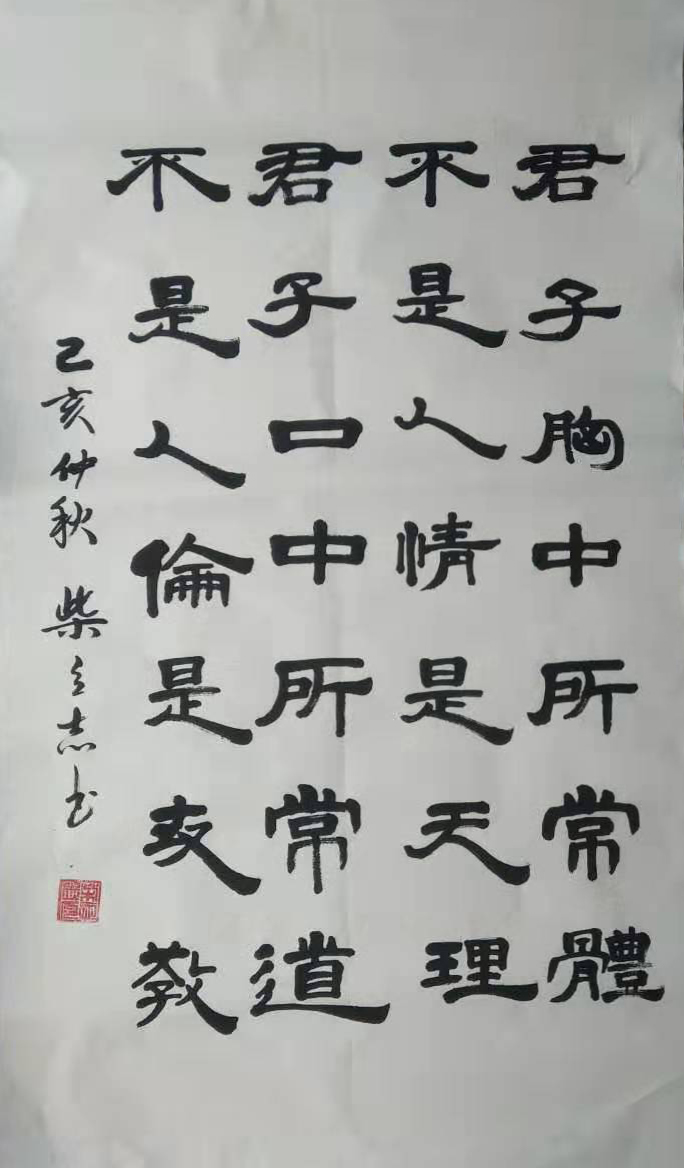 君子胸中所常體
不是人情是天理
君子口中所常道
不是人倫是教
己亥仲秋 柴立志书